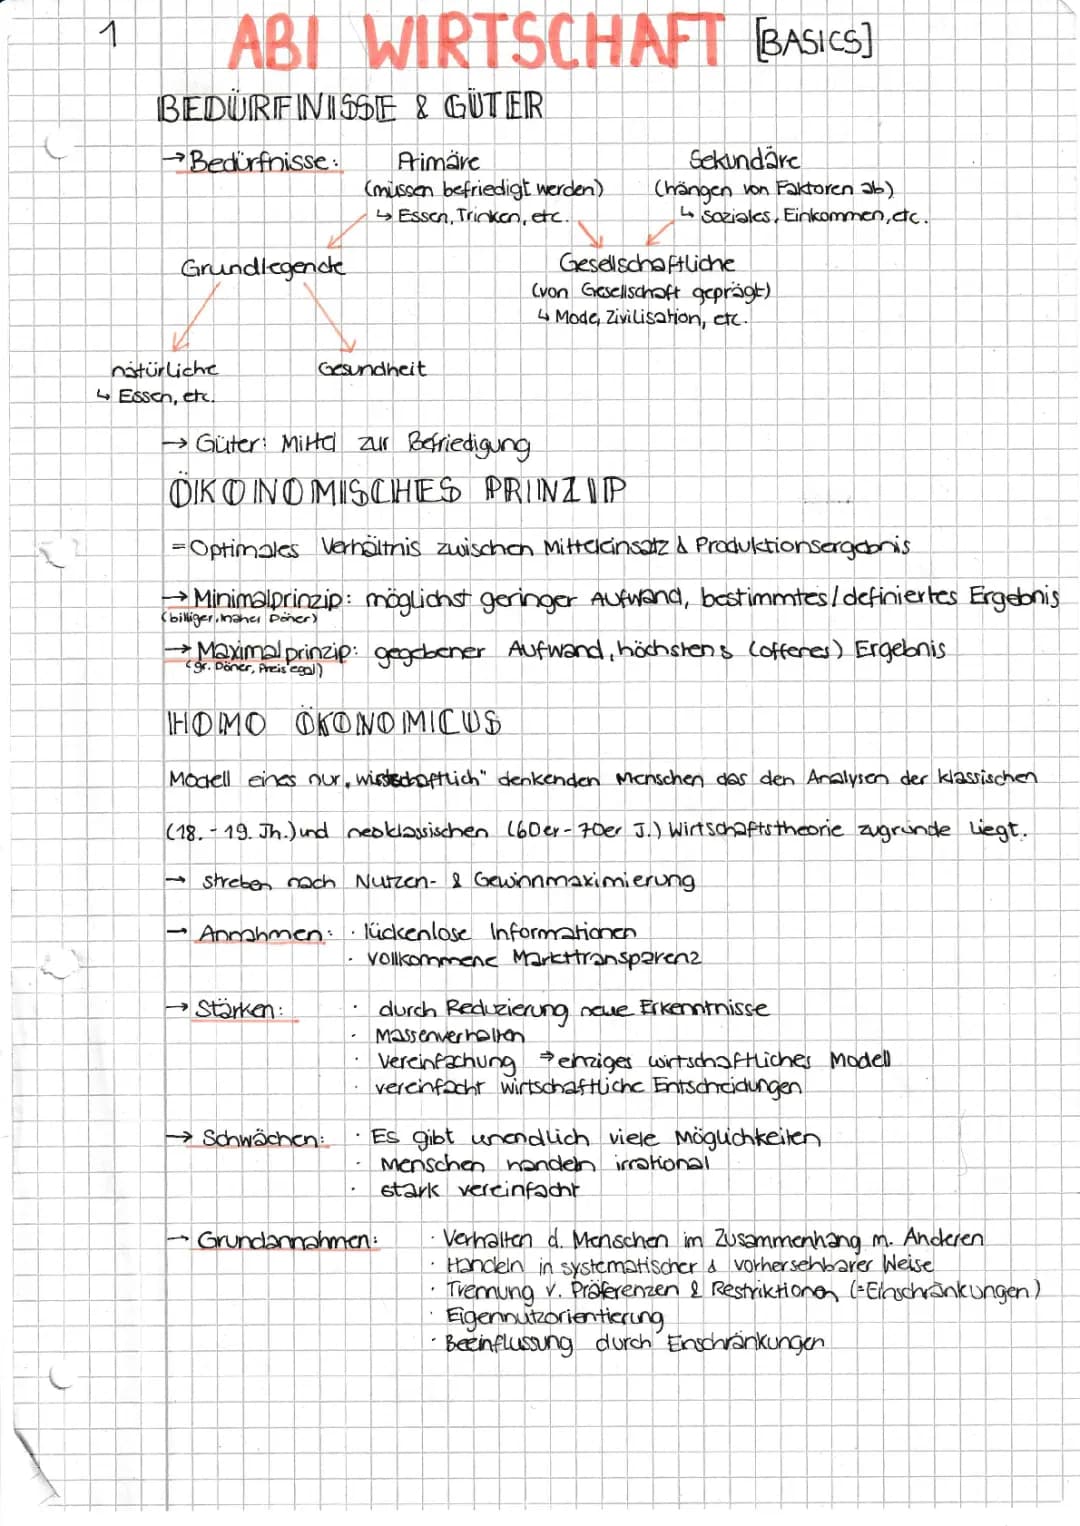 1
ABI WIRTSCHAFT [BASICS]
BEDÜRFNISSE & GÜTER
→ Bedürfnisse: Primäre Sekundäre
(müssen befriedigt werden) (hängen von Faktoren ab)
↳ Essen, Trinken, etc. ↳ Soziales, Einkommen, etc.
Grundlegende Gesellschaftliche
(von Gesellschaft geprägt)
↳ Mode, Zivilisation, etc.
natürliche Gesundheit
↳ Essen, etc.
→ Güter: Mittel zur Befriedigung
ÖKONOMISCHES PRINZIP
= Optimales Verhältnis zwischen Mitteleinsatz & Produktionsergebnis
→ Minimalprinzip: möglichst geringer Aufwand, bestimmtes/definiertes Ergebnis
(billiger, naher Döner)
→ Maximalprinzip: gegebener Aufwand, höchstens (offenes) Ergebnis
(gr. Döner, Preis egal)
HOMO ÖKONOMICUS
Modell eines nur „wirtschaftlich" denkenden Menschen, das den Analysen der klassischen
(18. - 19. Jh.) und neoklassischen (60er - 70er J.) Wirtschaftstheorie zugrunde liegt.
→ streben nach Nutzen- & Gewinnmaximierung
→ Annahmen: · lückenlose Informationen
· vollkommene Markttransparenz
→ Stärken: · durch Reduzierung neue Erkenntnisse
· Massenverhalten
· Vereinfachung ⇒ einziges wirtschaftliches Modell
· vereinfacht wirtschaftliche Entscheidungen
→ Schwächen: · Es gibt unendlich viele Möglichkeiten
· Menschen handeln irrational
· stark vereinfacht
→ Grundannahmen: · Verhalten d. Menschen im Zusammenhang m. Anderen
· Handeln in systematischer & vorhersehbarer Weise
· Trennung v. Präferenzen & Restriktionen (=Einschränkungen)
· Eigennutzorientierung
· Beeinflussung durch Einschränkungen